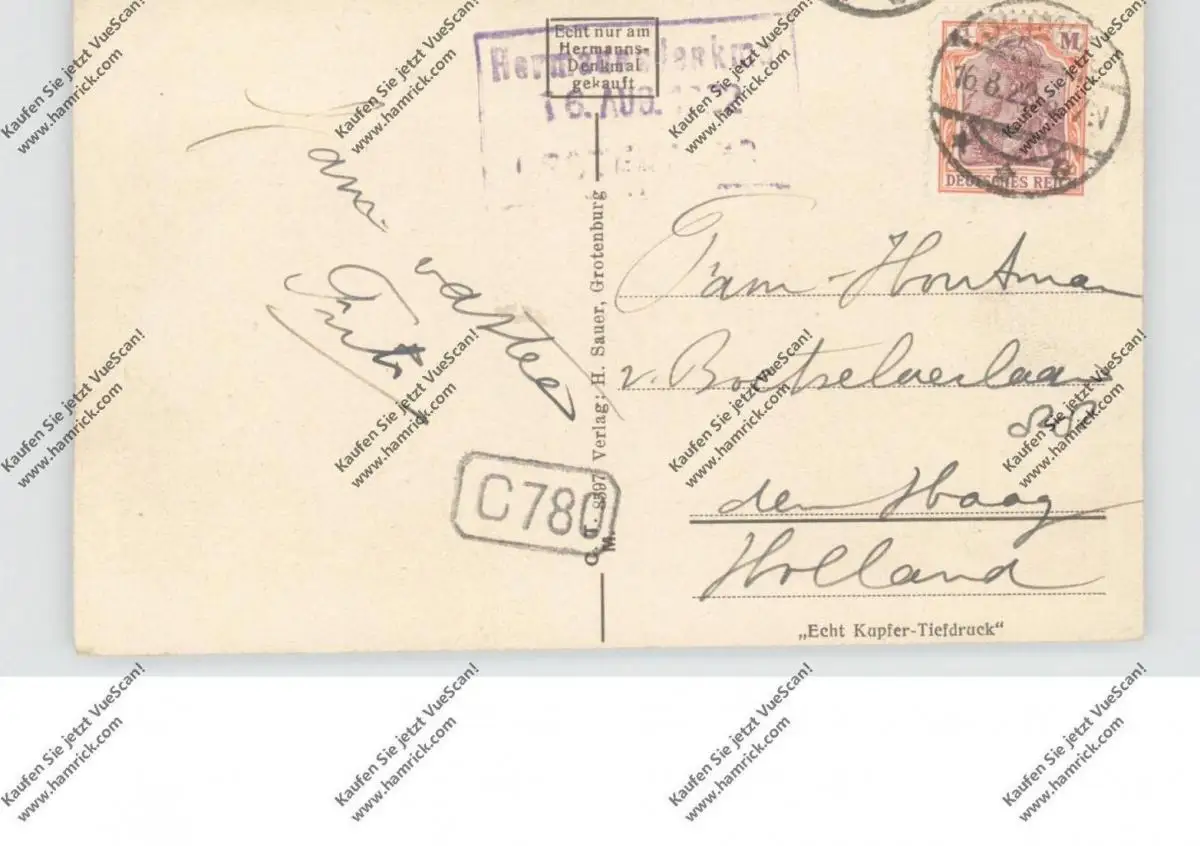 Echt nur am
Hermanns-
Denkmal
gekauft
Hermannsdenkmal
16. AUG. 1922
M
16.8.22
DEUTSCHES REICH
Fam-Houtman
v. Boetzelaerlaan
den Haag
Holland
„Echt Kupfer-Tiefdruck“
Verlag: H. Sauer, Grotenburg
C 780
Frits
Kaufen Sie jetzt VueScan!
www.hamrick.com
Kaufen Sie jetzt VueScan!
www.hamrick.com
Kaufen Sie jetzt VueScan!
www.hamrick.com
Kaufen Sie jetzt VueScan!
www.hamrick.com
Kaufen Sie jetzt VueScan!
www.hamrick.com
Kaufen Sie jetzt VueScan!
www.hamrick.com
Kaufen Sie jetzt VueScan!
www.hamrick.com
Kaufen Sie jetzt VueScan!
www.hamrick.com
Kaufen Sie jetzt VueScan!
www.hamrick.com
Kaufen Sie jetzt VueScan!
www.hamrick.com
Kaufen Sie jetzt VueScan!
www.hamrick.com
Kaufen Sie jetzt VueScan!
www.hamrick.com